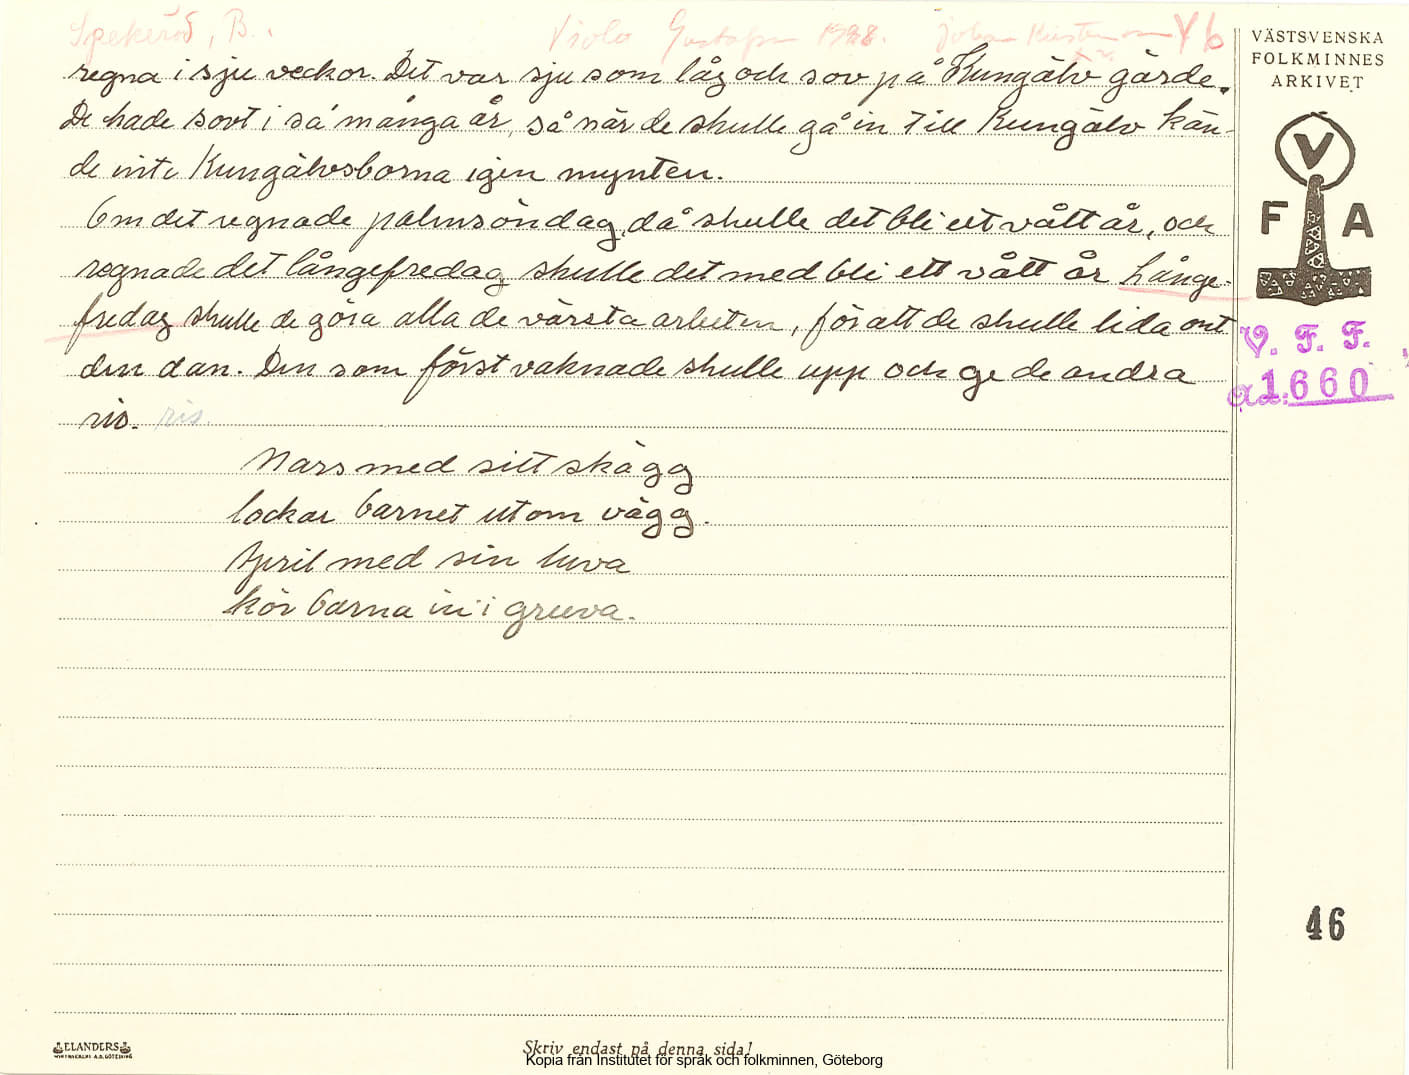 Spekeröd, B.. Viola Gustafson 1928. Johan Kristensson V6
regna i sju veckor. Det var sju som låg och sov på Kungälv gärde.
De hade sovt i så många år, så när de skulle gå in till Kungälv kän-
de inte Kungälvsborna igen mynten.
Om det regnade palmsöndag, då skulle det bli ett vått år, och
regnade det långefredag skulle det med bli ett vått år. Långe-
fredag skulle de göra alla de värsta arbeten, för att de skulle lida ont
den dan. Den som först vaknade skulle upp och ge de andra
ris. ris.
Mars med sitt skägg
lockar barnet utom vägg.
April med sin luva
kör barna in i gruva.
VÄSTSVENSKA
FOLKMINNES
ARKIVET
V
F A
V. F. F.
1660
46
ELANDERS
Skriv endast på denna sida!
Kopia från Institutet för språk och folkminnen, Göteborg